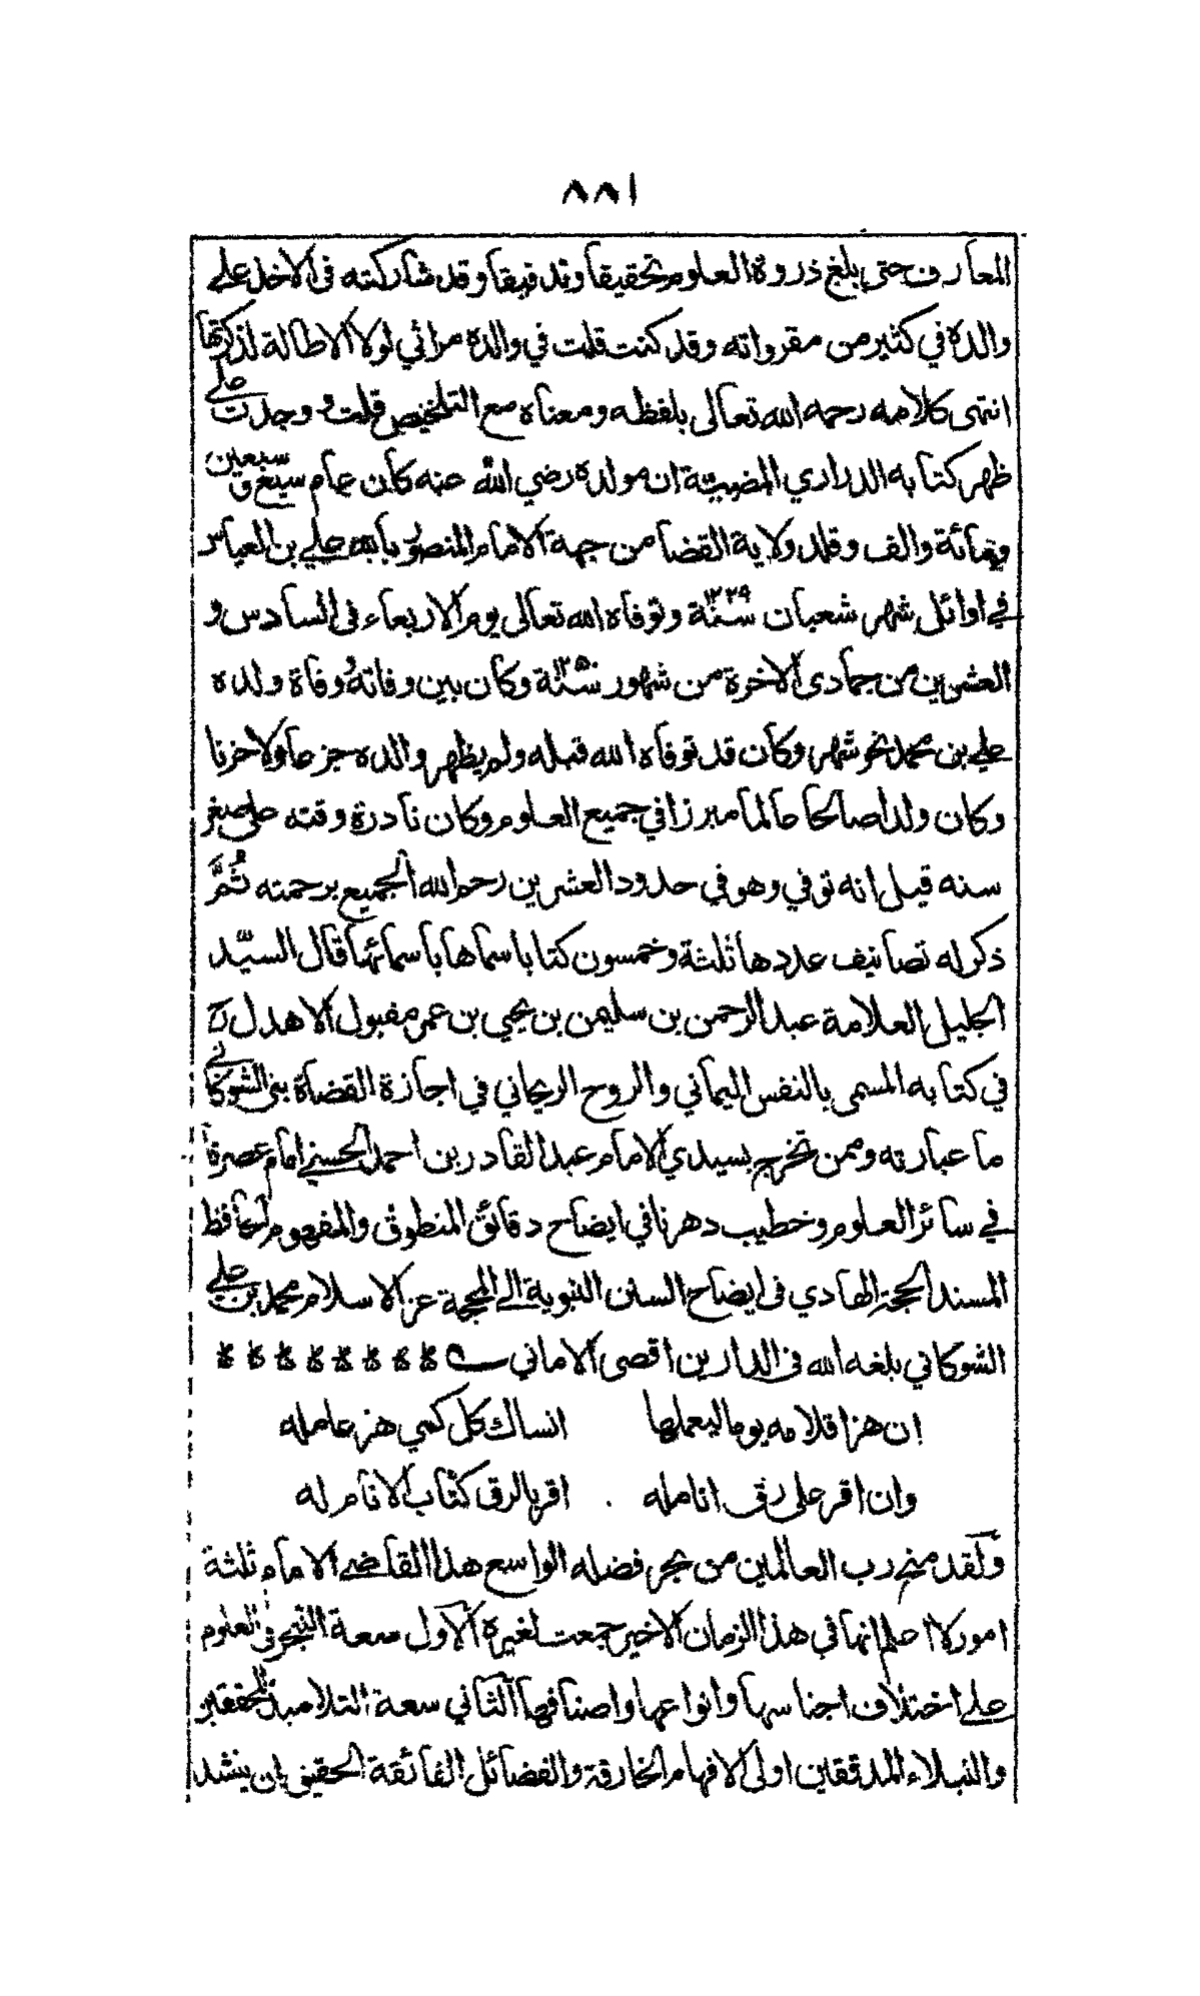 ٨٨١
المعارف حتى بلغ ذروة العلوم تحقيقا وتدقيقا وقد شاركته في الاخذ على
والده في كثير من مقرواته وقد كنت قلت في والده مراثي لولا الاطالة لذكرتها
انتهى كلامه رحمه الله تعالى بلفظه ومعناه مع التلخيص قلت ووجدت على
ظهر كتابه الدراري المضيئة ان مولده رضي الله عنه كان عام سبع وسبعين
ومائة والف وقلد ولاية القضا من جهة الامام المنصور بالله علي بن العباس
في اوائل شهر شعبان سنة ١٢٢٩ وتوفاه الله تعالى يوم الاربعاء في السادس و
العشرين من جمادى الاخرة من شهور سنة ١٢٥٠ وكان بين وفاته ووفاة ولده
علي بن محمد نحو شهر وكان قد توفاه الله قبله ولم يظهر والده جزعا ولا حزنا
وكان ولدا صالحا عالما مبرزا في جميع العلوم وكان نادرة وقته على صغر
سنه قيل انه توفي وهو في حدود العشرين رحم الله الجميع برحمته ثُمَّ
ذكر له تصانيف عددها ثلثة وخمسون كتابا سماها باسمائها قال السيّد
الجليل العلامة عبد الرحمن بن سليمن بن يحيى بن عمر مقبول الاهدل
في كتابه المسمى بالنفس اليماني والروح الريحاني في اجازة القضاة بني الشوكاني
ما عبارته وممن تخرج بسيدي الامام عبد القادر بن احمد الحسني امام عصرنا
في سائر العلوم وخطيب دهرنا في ايضاح دقائق المنطوق والمفهوم الحافظ
المسند الحجة الهادي في ايضاح السنن النبوية الى المحجة عز الاسلام محمد بن علي
الشوكاني بلغه الله في الدارين اقصى الاماني
ان هز اقلامه يوما ليعملها انساك كل كمي هز عامله
وان اقر على رق انامله اقر بالرق كتاب الانام له
ولقد منح رب العالمين من بحر فضله الواسع هذا القاضي الامام ثلثة
امور لا اعلم انها في هذا الزمان الاخير جمعت لغيره الاول سعة التبحر في العلوم
على اختلاف اجناسها وانواعها واصنافها الثاني سعة التلاميذ المحققين
والنبلاء المدققين اولى الافهام الخارقة والفضائل الفائقة الحقيق ان ينشد